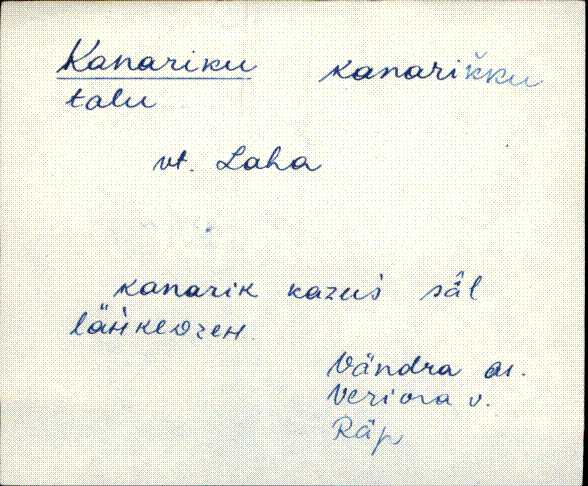 Kanariku kanarik̆ku
talu
vt. Laha
kanarik kazuś säl
läńkeozeh
Vändra as.
Veriora v.
Räp